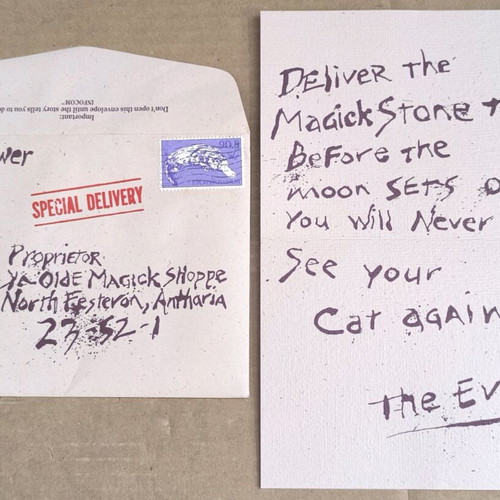 Important:
Don't open this envelope until the story tells you to d
INFOCOM™
wer
SPECIAL DELIVERY
Proprietor
Ye Olde Magick Shoppe
North Festeron, Antharia
23-52-1
Deliver the
Magick Stone t
Before the
moon sets o
You Will Never
See your
Cat again
The Ev